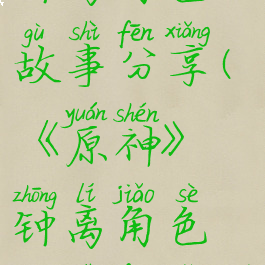 gù shì fēn xiǎng
故事分享(
yuán shén
《原神》
zhōng lí jiǎo sè
钟离角色